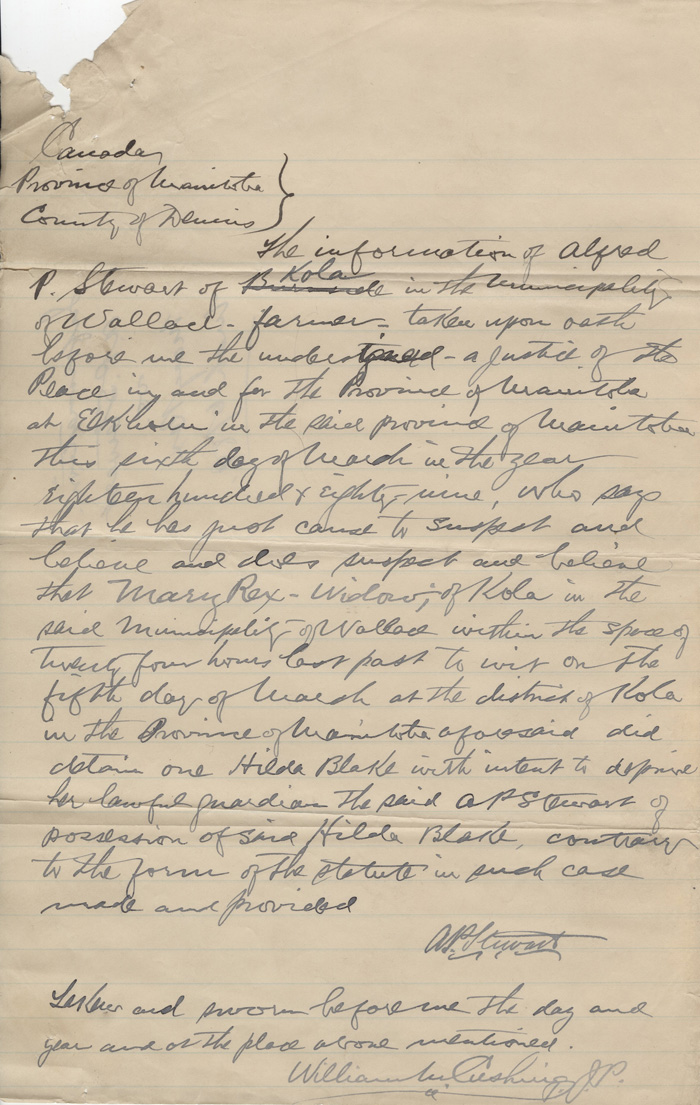 Canada
Province of Manitoba
County of Dennis
The information of Alfred
P. Stewart of Kola in the Municipality
of Wallace - farmer - taken upon oath
before me the undersigned - a Justice of the
Peace in and for the Province of Manitoba
at Elkhorn in the said province of Manitoba
this sixth day of March in the year
eighteen hundred & eighty-nine, who says
that he has just cause to suspect and
believe and does suspect and believe
that Mary Rex - Widow, of Kola in the
said Municipality of Wallace within the space of
twenty four hours last past to wit on the
fifth day of March at the district of Kola
in the Province of Manitoba aforesaid did
detain one Hilda Blake with intent to deprive
her lawful guardian the said A P Stewart of
possession of said Hilda Blake, contrary
to the form of the statute in such case
made and provided
A.P. Stewart
Taken and sworn before me the day and
year and at the place above mentioned.
William M Cushing J.P.